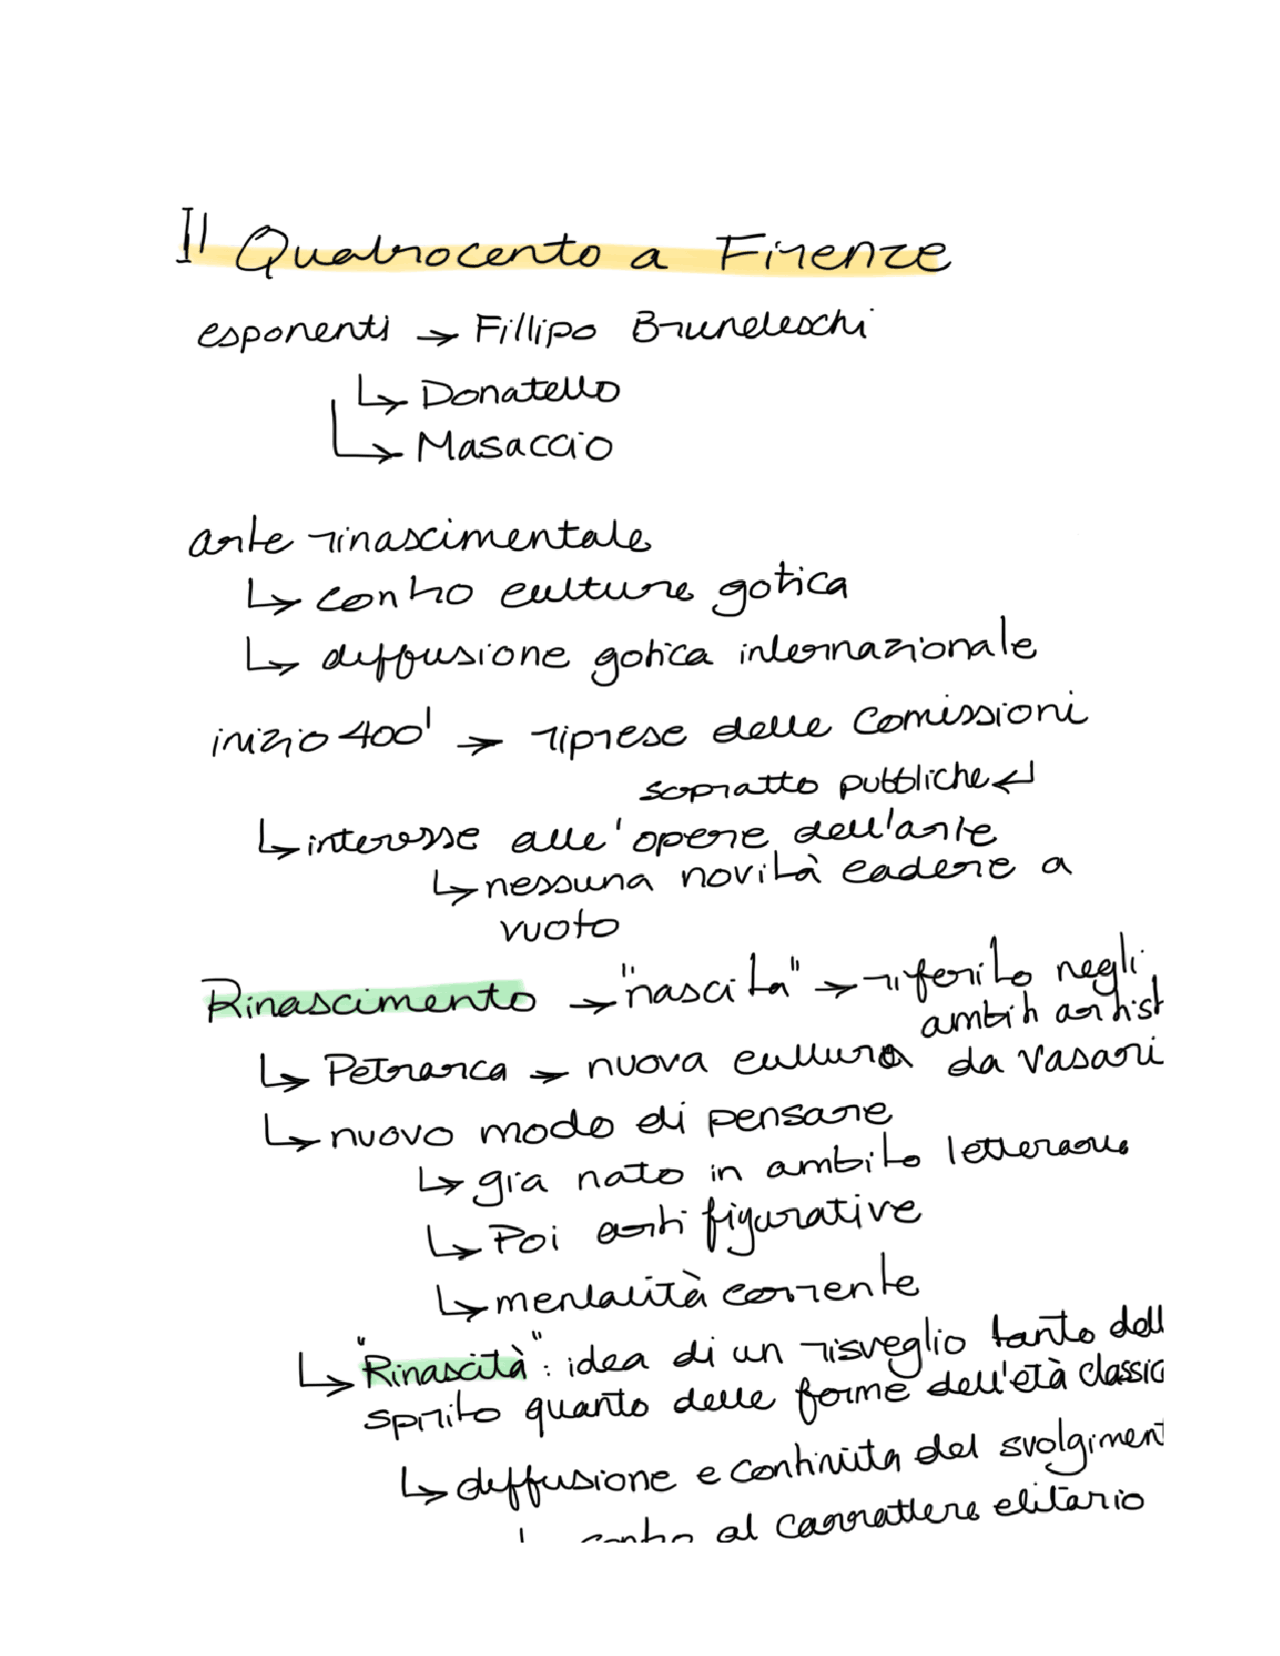 Il Quatrocento a Firenze
esponenti → Fillipo Bruneleschi
↳ Donatello
↳ Masaccio
arte rinascimentale
↳ contro culture gotica
↳ diffusione gotica internazionale
inizio 400' → riprese delle Comissioni
sopratto pubbliche ↵
↳ interesse alle' opere dell'arte
↳ nessuna novità cadere a
vuoto
Rinascimento → "nascita" → riferito negli
ambiti artist
↳ Petrarca → nuova cultura da Vasari
↳ nuovo modo di pensare
↳ gia nato in ambito
↳ Poi arti figurative
↳ mentalità corrente
↳ "Rinascità": idea di un risveglio tanto dell
spirito quanto delle forme dell'età classic
↳ diffusione e continuita del svolgiment
contro al carrattere elitario